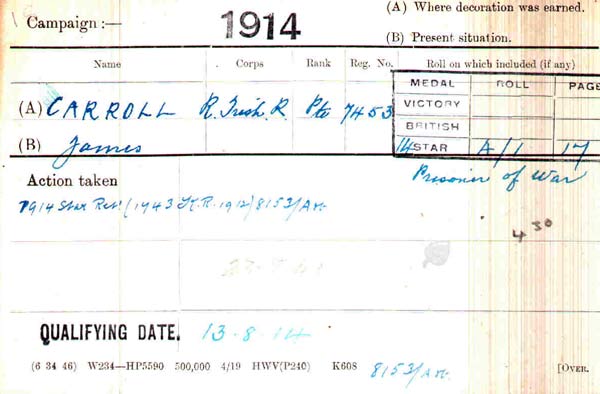 Campaign :— 1914 (A) Where decoration was earned.
(B) Present situation.
Name Corps Rank Reg. No. Roll on which included (if any)
MEDAL ROLL PAGE
(A) CARROLL R. Irish. R. Pte 7453 VICTORY
BRITISH
(B) James 14 STAR A/1 17
Action taken Prisoner of War
1914 Star Ret (1743 K.R. 1912) 8153/Ar.
4 30
QUALIFYING DATE. 13-8-14
(6 34 46) W234—HP5590 500,000 4/19 HWV(P240) K608 8153/Ar. [OVER.